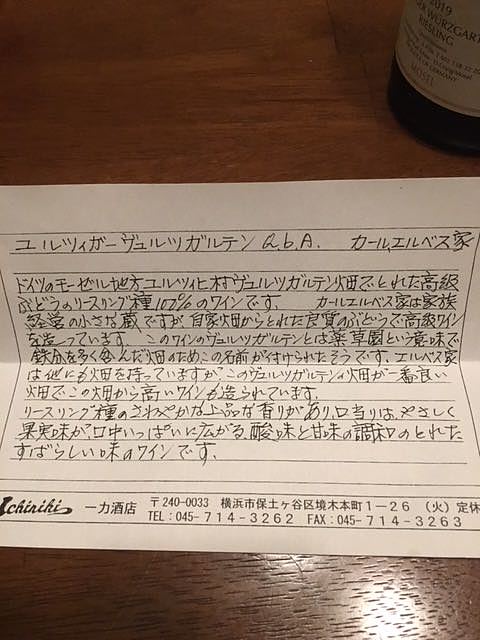 2019
WÜRZGART
RIESLING
MOSEL
ユルツィガーヴュルツガルテン Q.b.A. カール,エルベス家
ドイツのモーゼル地方ユルツィヒ村ヴュルツガルテン畑でとれた高級
ぶどうのリースリング種100%のワインです。 カールエルベス家は家族
経営の小さな蔵ですが自家畑からとれた良質のぶどうで高級ワイン
を造っています。このワインのヴュルツガルテンとは薬草園という意味で
鉄分を多く含んだ畑のためこの名前が付けられたそうです。エルベス家
は他にも畑を持っていますがこのヴュルツガルテン畑が一番良い
畑でこの畑から高いワインも造られています。
リースリング種のさわやかな上品な香りがあり、口当りは、やさしく
果実味が口中いっぱいに広がる酸味と甘味の調和のとれた
すばらしい味のワインです。
Ichiriki 一力酒店 〒240-0033 横浜市保土ヶ谷区境木本町1-26 (火)定休
TEL:045-714-3262 FAX:045-714-3263